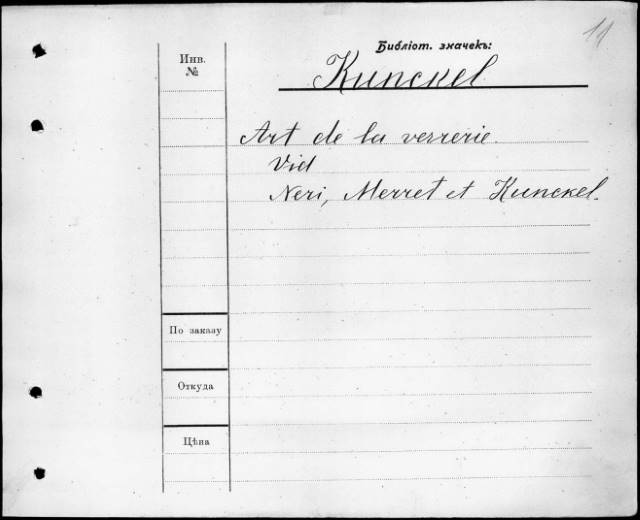 11
Библіот. значекъ:
Инв.
№
Kunckel
Art de la verrerie.
Vid
Neri, Merret et Kunckel.
По заказу
Откуда
Цѣна